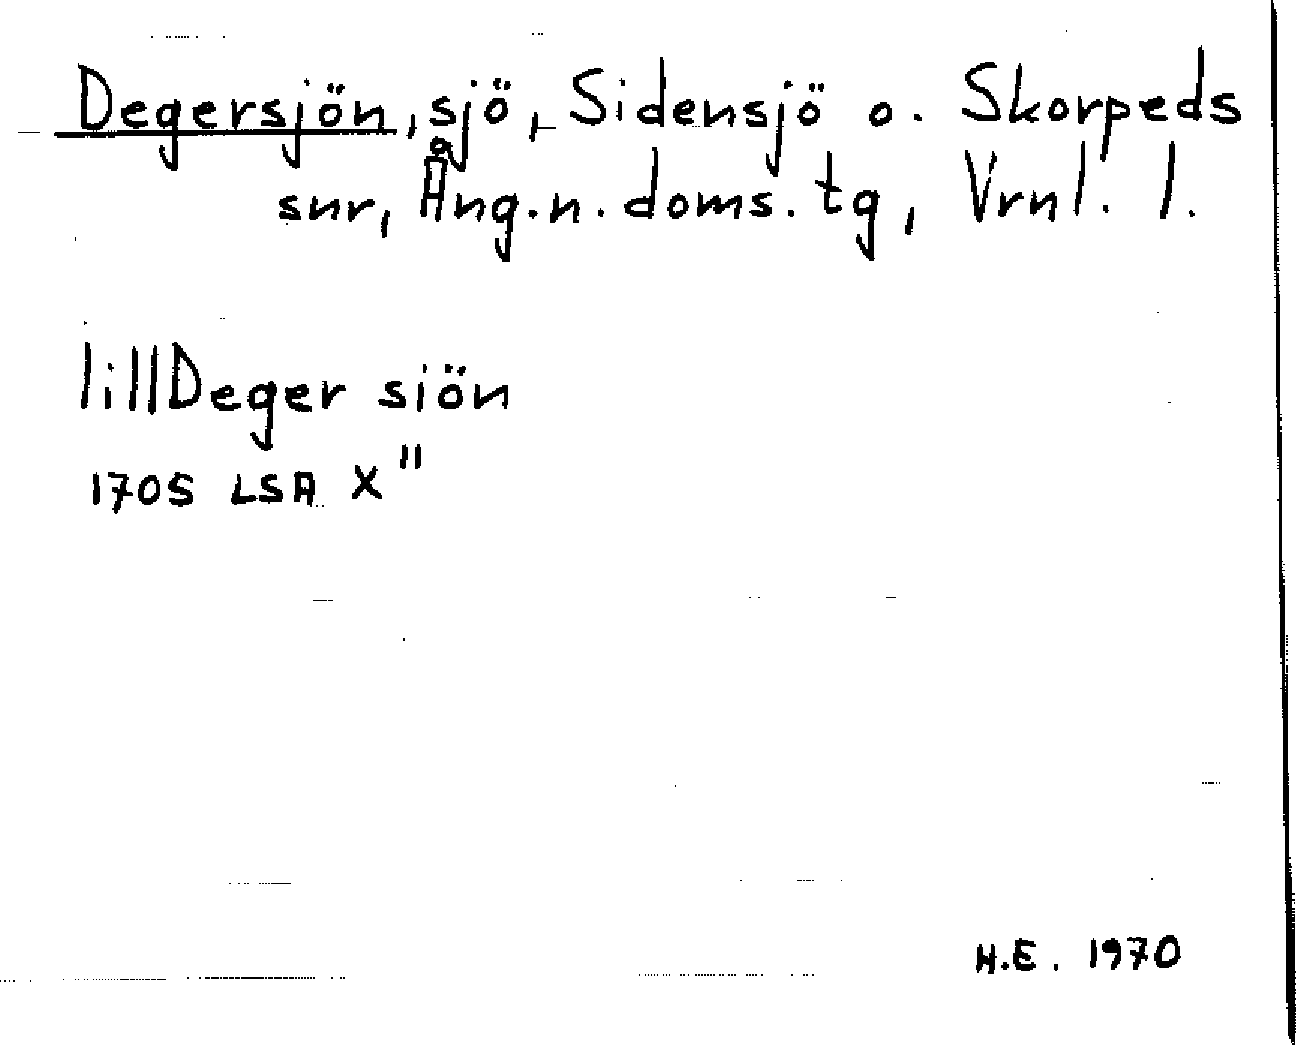 Degersjön, sjö, Sidensjö o. Skorpeds
snr, Ång.n. doms. tg, Vrnl. l.
lillDeger siön
1705 LSA X"
H.E. 1970